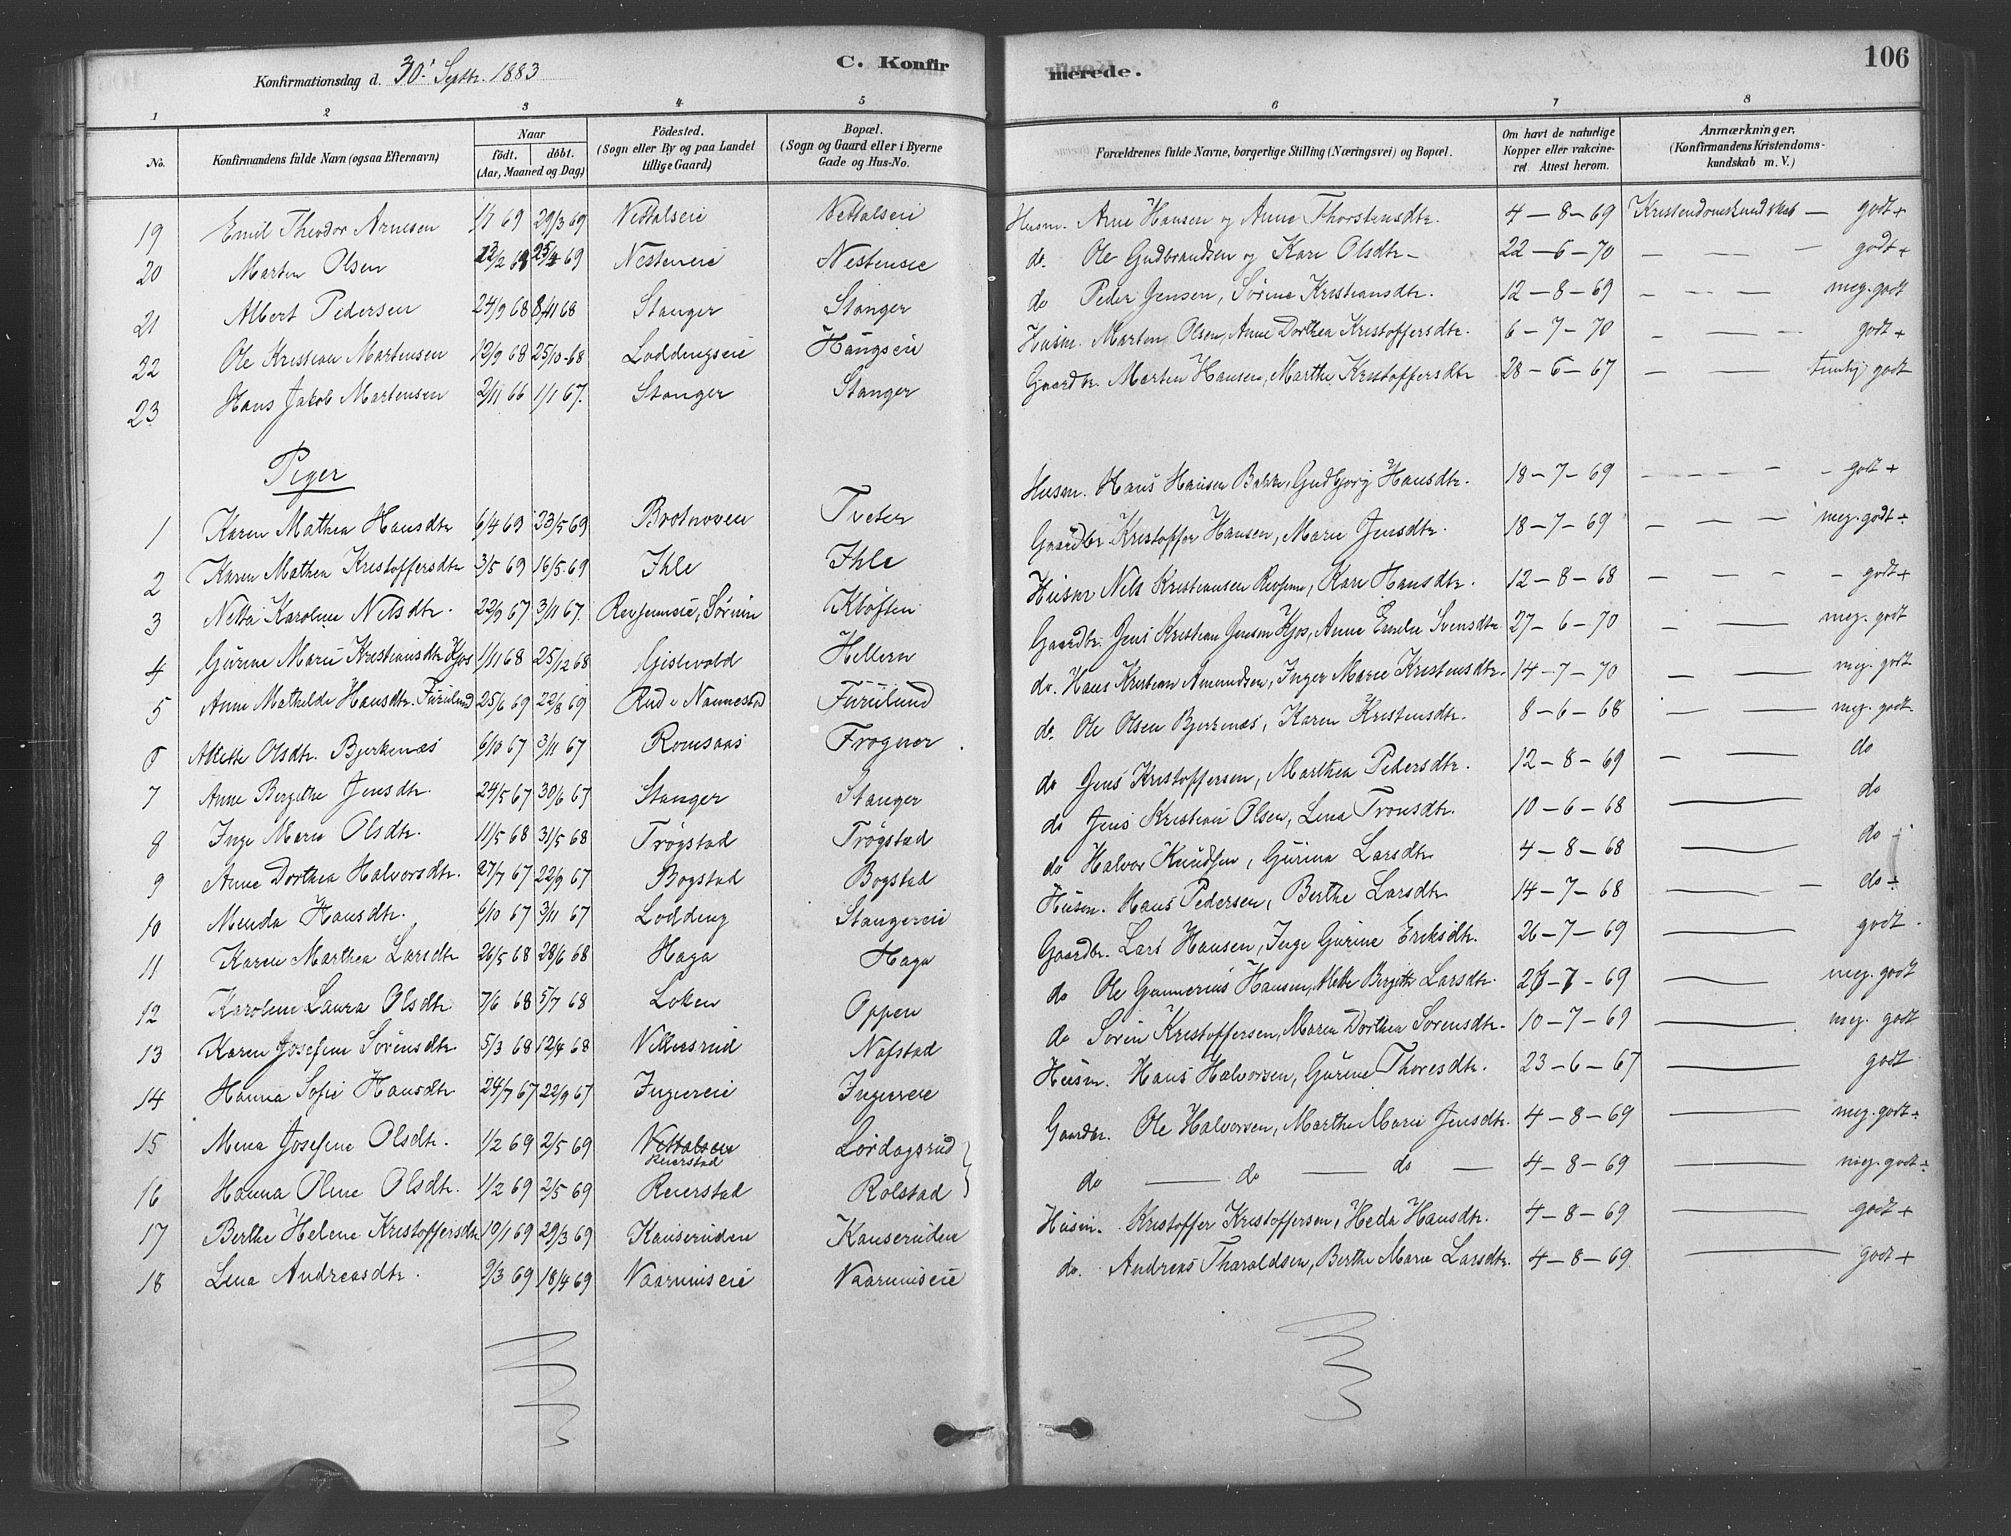 Konfirmationsdag d. 30' Septbr. 1883
C. Konfirmerede.
106
1 2 3 4 5 6 7 8
No.
Konfirmandens fulde Navn (ogsaa Efternavn)
Naar
födt. döbt.
(Aar, Maaned og Dag)
Födested.
(Sogn eller By og paa Landet
tillige Gaard)
Bopæl.
(Sogn og Gaard eller i Byerne
Gade og Hus-No.
Forældrenes fulde Navne, borgerlige Stilling (Næringsvei) og Bopæl.
Om havt de naturlige
Kopper eller vakcine-
ret Attest herom.
Anmærkninger.
(Konfirmandens Kristendoms-
kundskab m. V.)
19 Emil Theodor Arnesen 1/1 69 29/3 69 Nettalseie Nettalseie Husm. Arne Hansen og Anne Thorstensdtr. 4-8-69 Kristendomskundskab — godt +
20 Marten Olsen 25/4 69 Nesteneie Nesteneie do. Ole Gudbrandsen og Kari Olsdtr 22-6-70 — — — godt +
21 Albert Pedersen 24/9 68 8/11 68 Stanger Stanger do Peder Jensen, Sørine Kristiansdtr. 12-8-69 — — — meg. godt
22 Ole Kristian Martensen 12/9 68 25/10 68 Loddingseie Haugseie Husm. Marten Olsen, Anne Dorthea Kristoffersdtr. 6-7-70 — — godt +
23 Hans Jakob Martensen 2/11 66 1/1 67. Stanger Stanger Gaardbr. Marten Hansen, Marthe Kristoffersdtr 28-6-67 — — temlig godt
Piger
1 Karen Mathea Hansdtr 6/4 69 23/5 69 Brotnoveie Tveter Husm. Hans Hansen Bakke, Gudbjørg Hansdtr. 18-7-69 — — — godt +
2 Karen Mathea Kristoffersdtr 3/5 69 16/5 69 Ihle Ihle Gaardbr. Kristoffer Hansen, Marie Jensdtr. 18-7-69 — — — meg. godt +
3 Netta Karoline Nilsdtr. 22/9 67 3/11 67. Kløften Husm Nils Kristiansen Kari Hansdtr. 12-8-68 — — — godt +
4 Gurine Marie Kristiansdtr Kjos 1/11 68 25/12 68 Gistvold Hellern Gaardbr. Jens Kristian Jensen Kjos, Anne Emilie Svensdtr. 27-6-70 — — meg. godt
5 Anne Mathilde Hansdtr. Furulund 25/6 69 22/8 69 Rud i Nannestad Furulund do. Hans Kristian Amundsen, Inger Marie Kristensdtr. 14-7-70 — — meg. godt
6 Olsdtr. Bjerkenæs 6/10 67 3/11 67 Romsaas Frogner do. Ole Olsen Bjerkenæs, Karen Kristensdtr. 8-6-68 — — meg. godt.
7 Anne Bergithe Jensdtr. 24/5 67 30/6 67 Stanger Stanger do Jens Kristoffersen, Marthea Pedersdtr. 12-8-69 — — do
8 Inge Marie Olsdtr. 11/5 68 31/5 68 Trøgstad Trøgstad do Jens Kristian Olsen, Lena Tronsdtr. 10-6-68 — do
9 Anne Dorthea Halvorsdtr. 27/7 67 22/9 67 Bogstad Bogstad do Halvor Knudsen, Gurina Larsdtr 4-8-68 — do
10 Minda Hansdtr. 6/10 67 3/11 67 Lodding Stangereie Husm. Hans Pedersen, Berthe Larsdtr 14-7-68 — do +
11 Karen Marthea Larsdtr 26/5 68 28/6 68 Haga Haga Gaardbr. Lars Hansen, Inge Gurine Eriksdtr. 26-7-69 — godt
12 Karoline Laura Olsdtr 7/6 68 5/7 68 Løken Oppen do Ole Gunnerius Hansen, Mette Bergitte Larsdtr. 26-7-69 — meg. godt
13 Karen Josefine Sørensdtr. 5/3 68 12/4 68 Villersrud Nafstad do Sørin Kristoffersen, Maren Dorthea Sørensdtr. 10-7-69 — meg. godt
14 Hanna Sofie Hansdtr 24/7 67 22/9 67 Ingiereie Ingiereie Husm. Hans Halvorsen, Gurine Thoresdtr. 23-6-67 — godt
15 Mina Josefine Olsdtr. 1/2 69 2/5 69 Nettalseie Reierstad Lørdagsrud Gaardbr. Ole Halvorsen, Marthe Marie Jensdtr. 4-8-69 — meg. godt +
16 Hanna Oline Olsdtr. 1/2 69 2/5 69 Reierstad Rolstad do — do — do — 4-8-69 — meg. godt +
17 Berthe Helene Kristoffersdtr 19/1 69 29/3 69 Kauserudeie Kauserudeie Husm. Kristoffer Kristoffersen, Heda Hansdtr. 4-8-69 — godt +
18 Lina Andreasdtr. 9/3 69 18/4 69 Vaarumseie Vaarumseie do. Andreas Tharaldsen, Berthe Marie Larsdtr. 4-8-69 — godt +